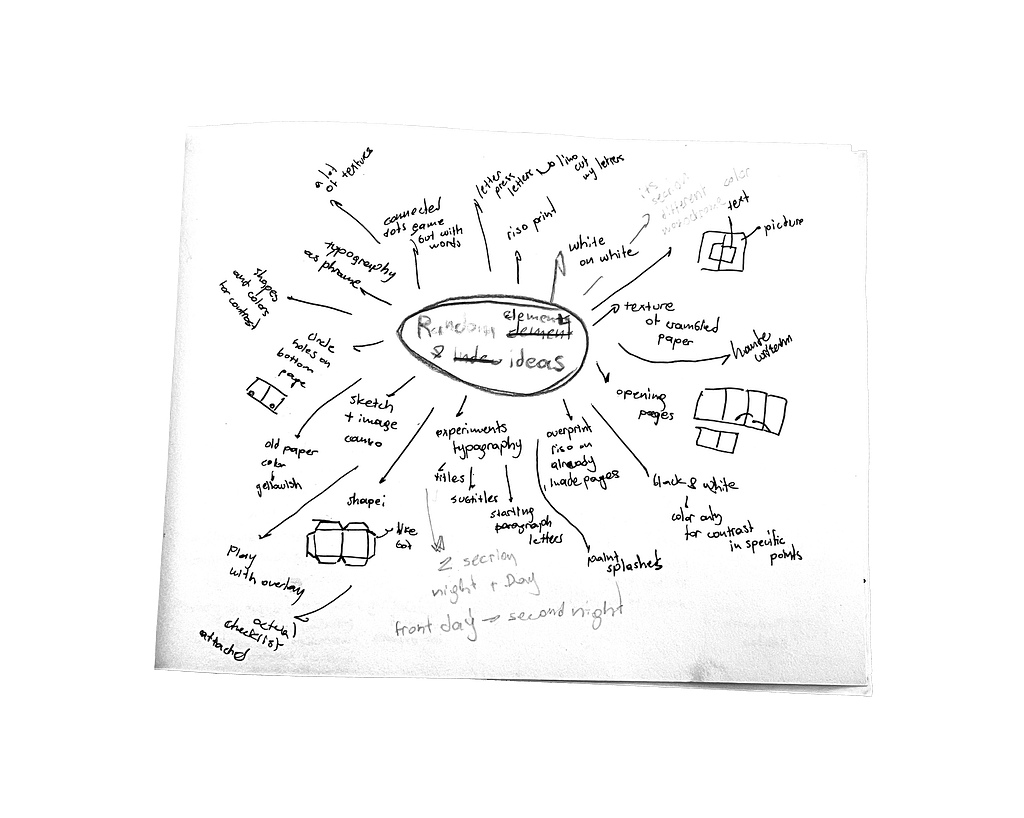 Random elements
element
& ideas
lot
of textures
connected
dots game
but with
words
letter
press
letters
lino
cut
my letters
riso print
white
on white
section
different color
text
picture
typography
as phrame
shapes
and colors
for contrast
circle
holes on
bottom
page
old paper
color
yellowish
sketch
+ image
combo
play
with overlay
shape:
like
box
actual
checklist
attached
experiments
typography
titles
subtitles
starting
paragraph
letters
2 section
night + Day
front day → second night
overprint
riso on
already
made pages
paint
splashes
black & white
color only
for contrast
in specific
points
opening
pages
texture
of crambled
paper